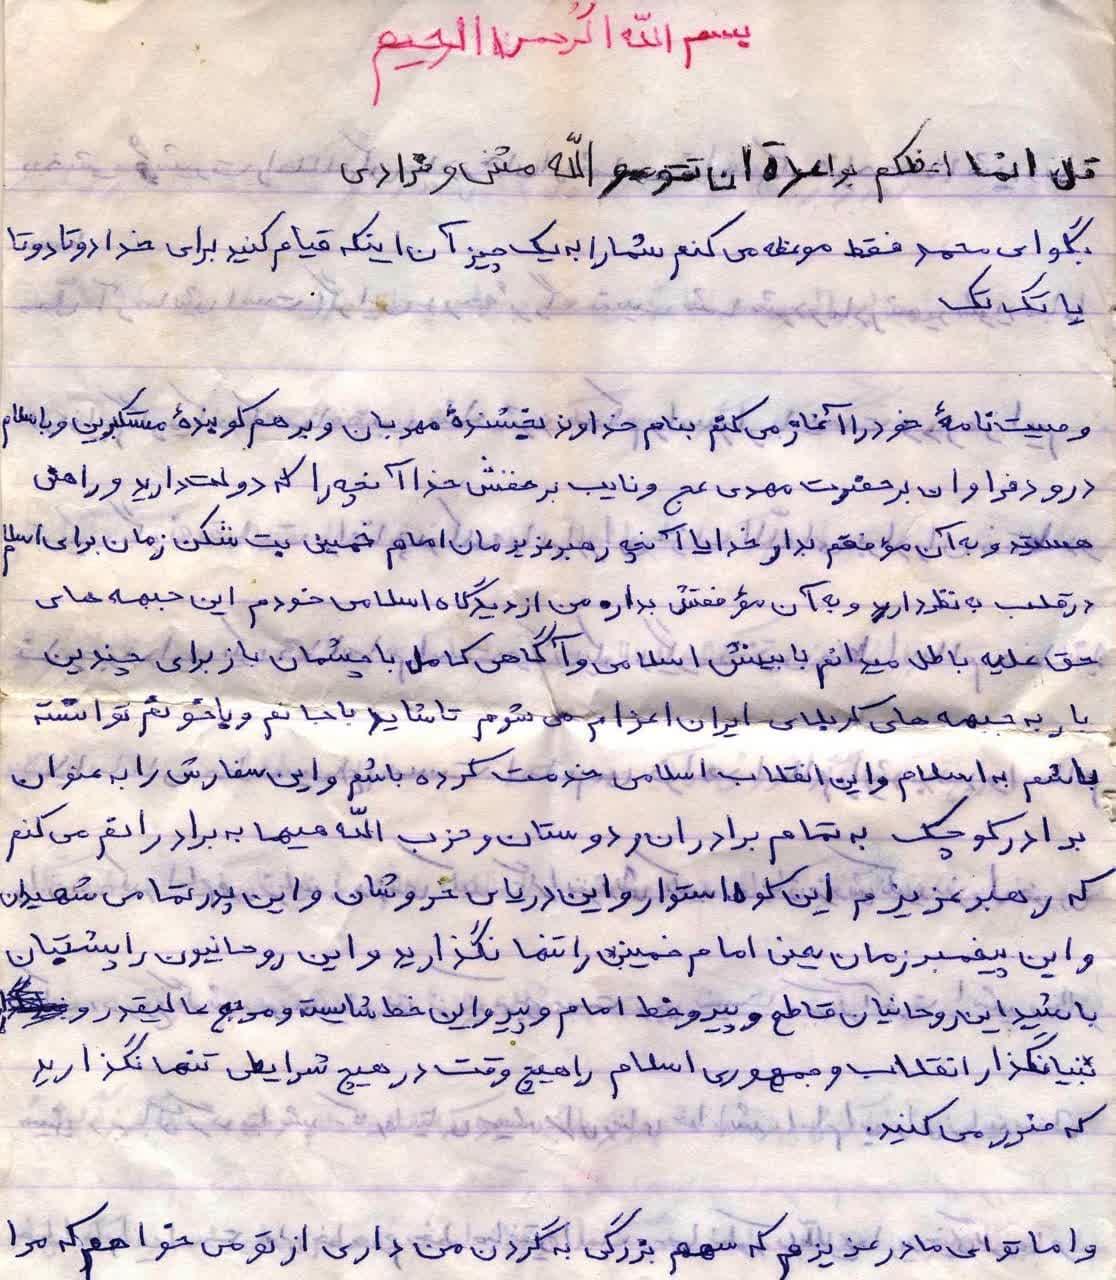 بسم الله الرحمن الرحیم
قل انما اعظکم بواعدة ان تقومو الله مثنی و فرادی
بگو ای محمد فقط موعظه می کنم شما را به یک چیز آن اینکه قیام کنید برای خدا دوتا دوتا
یا تک تک
وصیت نامهٔ خود را آغاز می کنم بنام خداوند بخشندهٔ مهربان و برهم کوبندهٔ مستکبرین و با سلام
درود فراوان بر حضرت مهدی عج و نایب برحقش خدا آنچه را که دوست دارید و راضی
هستید و به آن موفقم بدار خدایا آنچه رهبر عزیزمان امام خمینی بت شکن زمان برای اسلام
در قلب به نظر دارید و به آن موفقش بدار من از دیدگاه اسلامی خودم این جبهه های
حق علیه باطل میدانم با بینش اسلامی و آگاهی کامل با چشمان باز برای چندین
بار به جبهه های کربلای ایران اعزام می شوم تا شاید با جانم و یا خونم توانسته
باشم به اسلام و این انقلاب اسلامی خدمت کرده باشم و این سفارش را به عنوان
برادر کوچک به تمام برادران و دوستان و حزب اللّه میها به برادرانم می کنم
که رهبر عزیزم این کوه استوار و این دریای خروشان و این پدر تمامی شهیدان
و این پیغمبر زمان یعنی امام خمینی را تنها نگذارید و این روحانیون را پشتیبان
باشید این روحانیان قاطع و پیرو خط امام و پیرو این خط شایسته و مرجع عالیقدر و
بنیانگذار انقلاب و جمهوری اسلام را هیچ وقت در هیچ شرایطی تنها نگذارید
که ضرر می کنید.
و اما تو ای مادر عزیزم که سهم بزرگی به گردن من داری از تو می خواهم که مرا